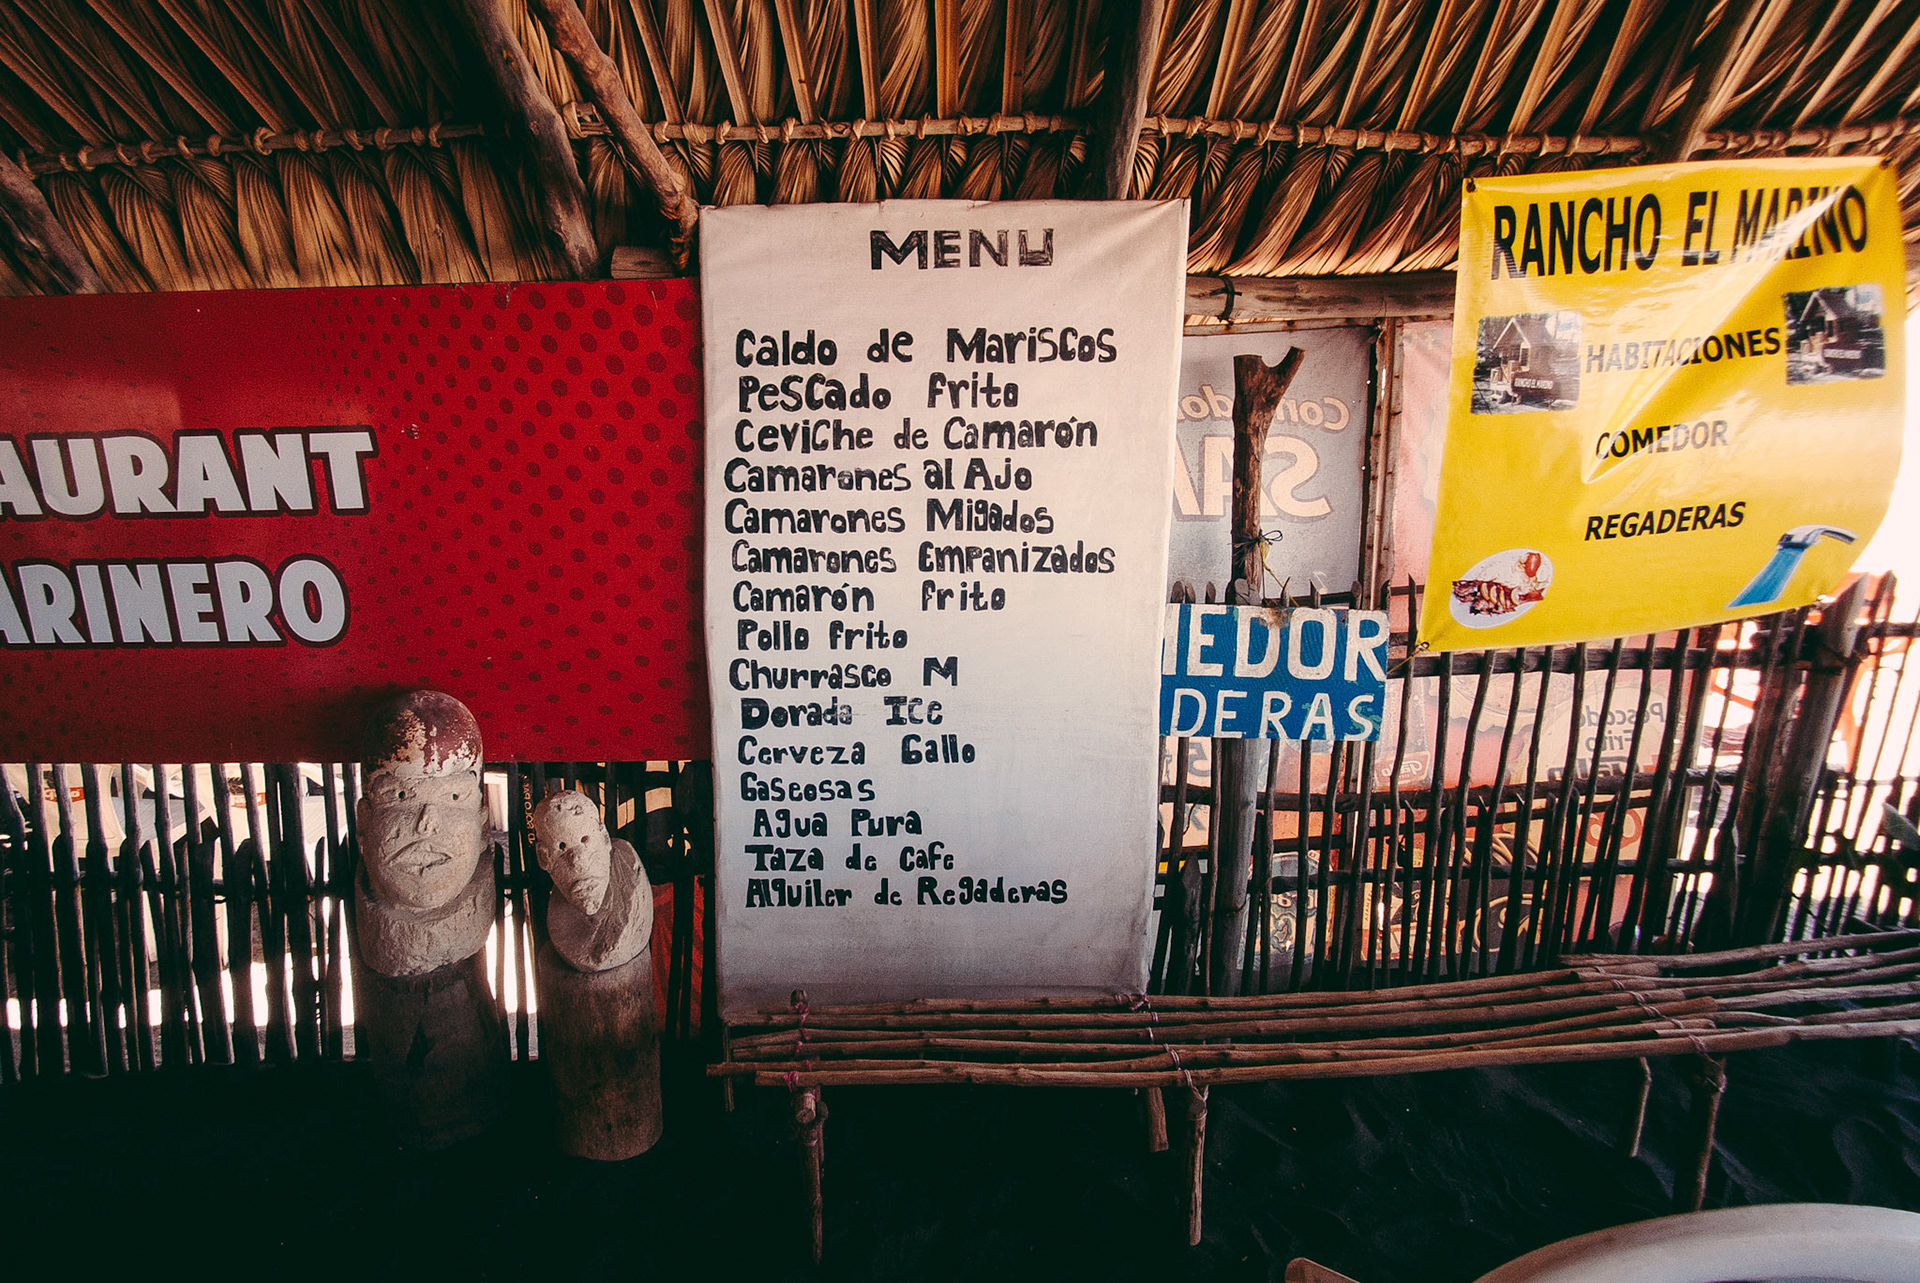 AURANT
ARINERO
MENU
Caldo de Mariscos
Pescado frito
Ceviche de Camarón
Camarones al Ajo
Camarones Migados
Camarones Empanizados
Camarón frito
Pollo frito
Churrasco M
Dorada Ice
Cerveza Gallo
Gaseosas
Agua Pura
Taza de Cafe
Alquiler de Regaderas
MEDOR
DERAS
RANCHO EL MARINO
HABITACIONES
COMEDOR
REGADERAS
Pescado
Frito